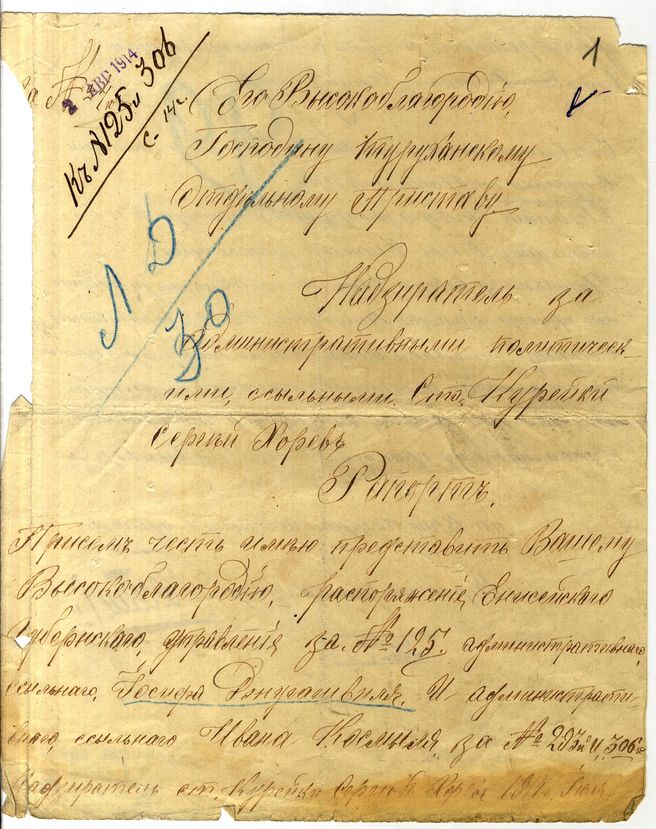 2 АВГ 1914
Къ № 125 и 306
с. 14 г.
1
Его Высокоблагородію,
Господину Туруханскому
Отдѣльному Приставу
Л Д
30
Надзиратель за
административными политическ-
ими, ссыльными. Ст. Курейки
Сергѣй Хоревъ
Рапортъ.
Присемъ честь имѣю представить Вашему
Высокоблагородію, распоряженіе, Енисейского
Губернского, управленія за. № 125. административнаго,
ссыльнаго, Іосифа Джугашвиля. И административ-
наго, ссыльнаго Ивана
за № и, 306
Надзиратель ст. Курейки Сергѣй Хоревъ